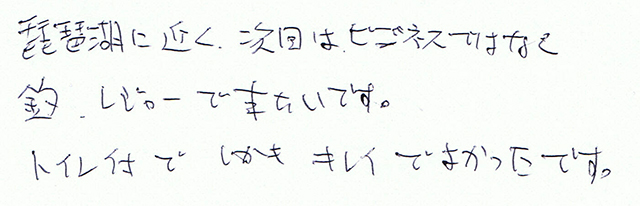 琵琶湖に近く、次回は、ビジネスではなく
釣、レジャーで来たいです。
トイレ付で しかも キレイでよかったです。